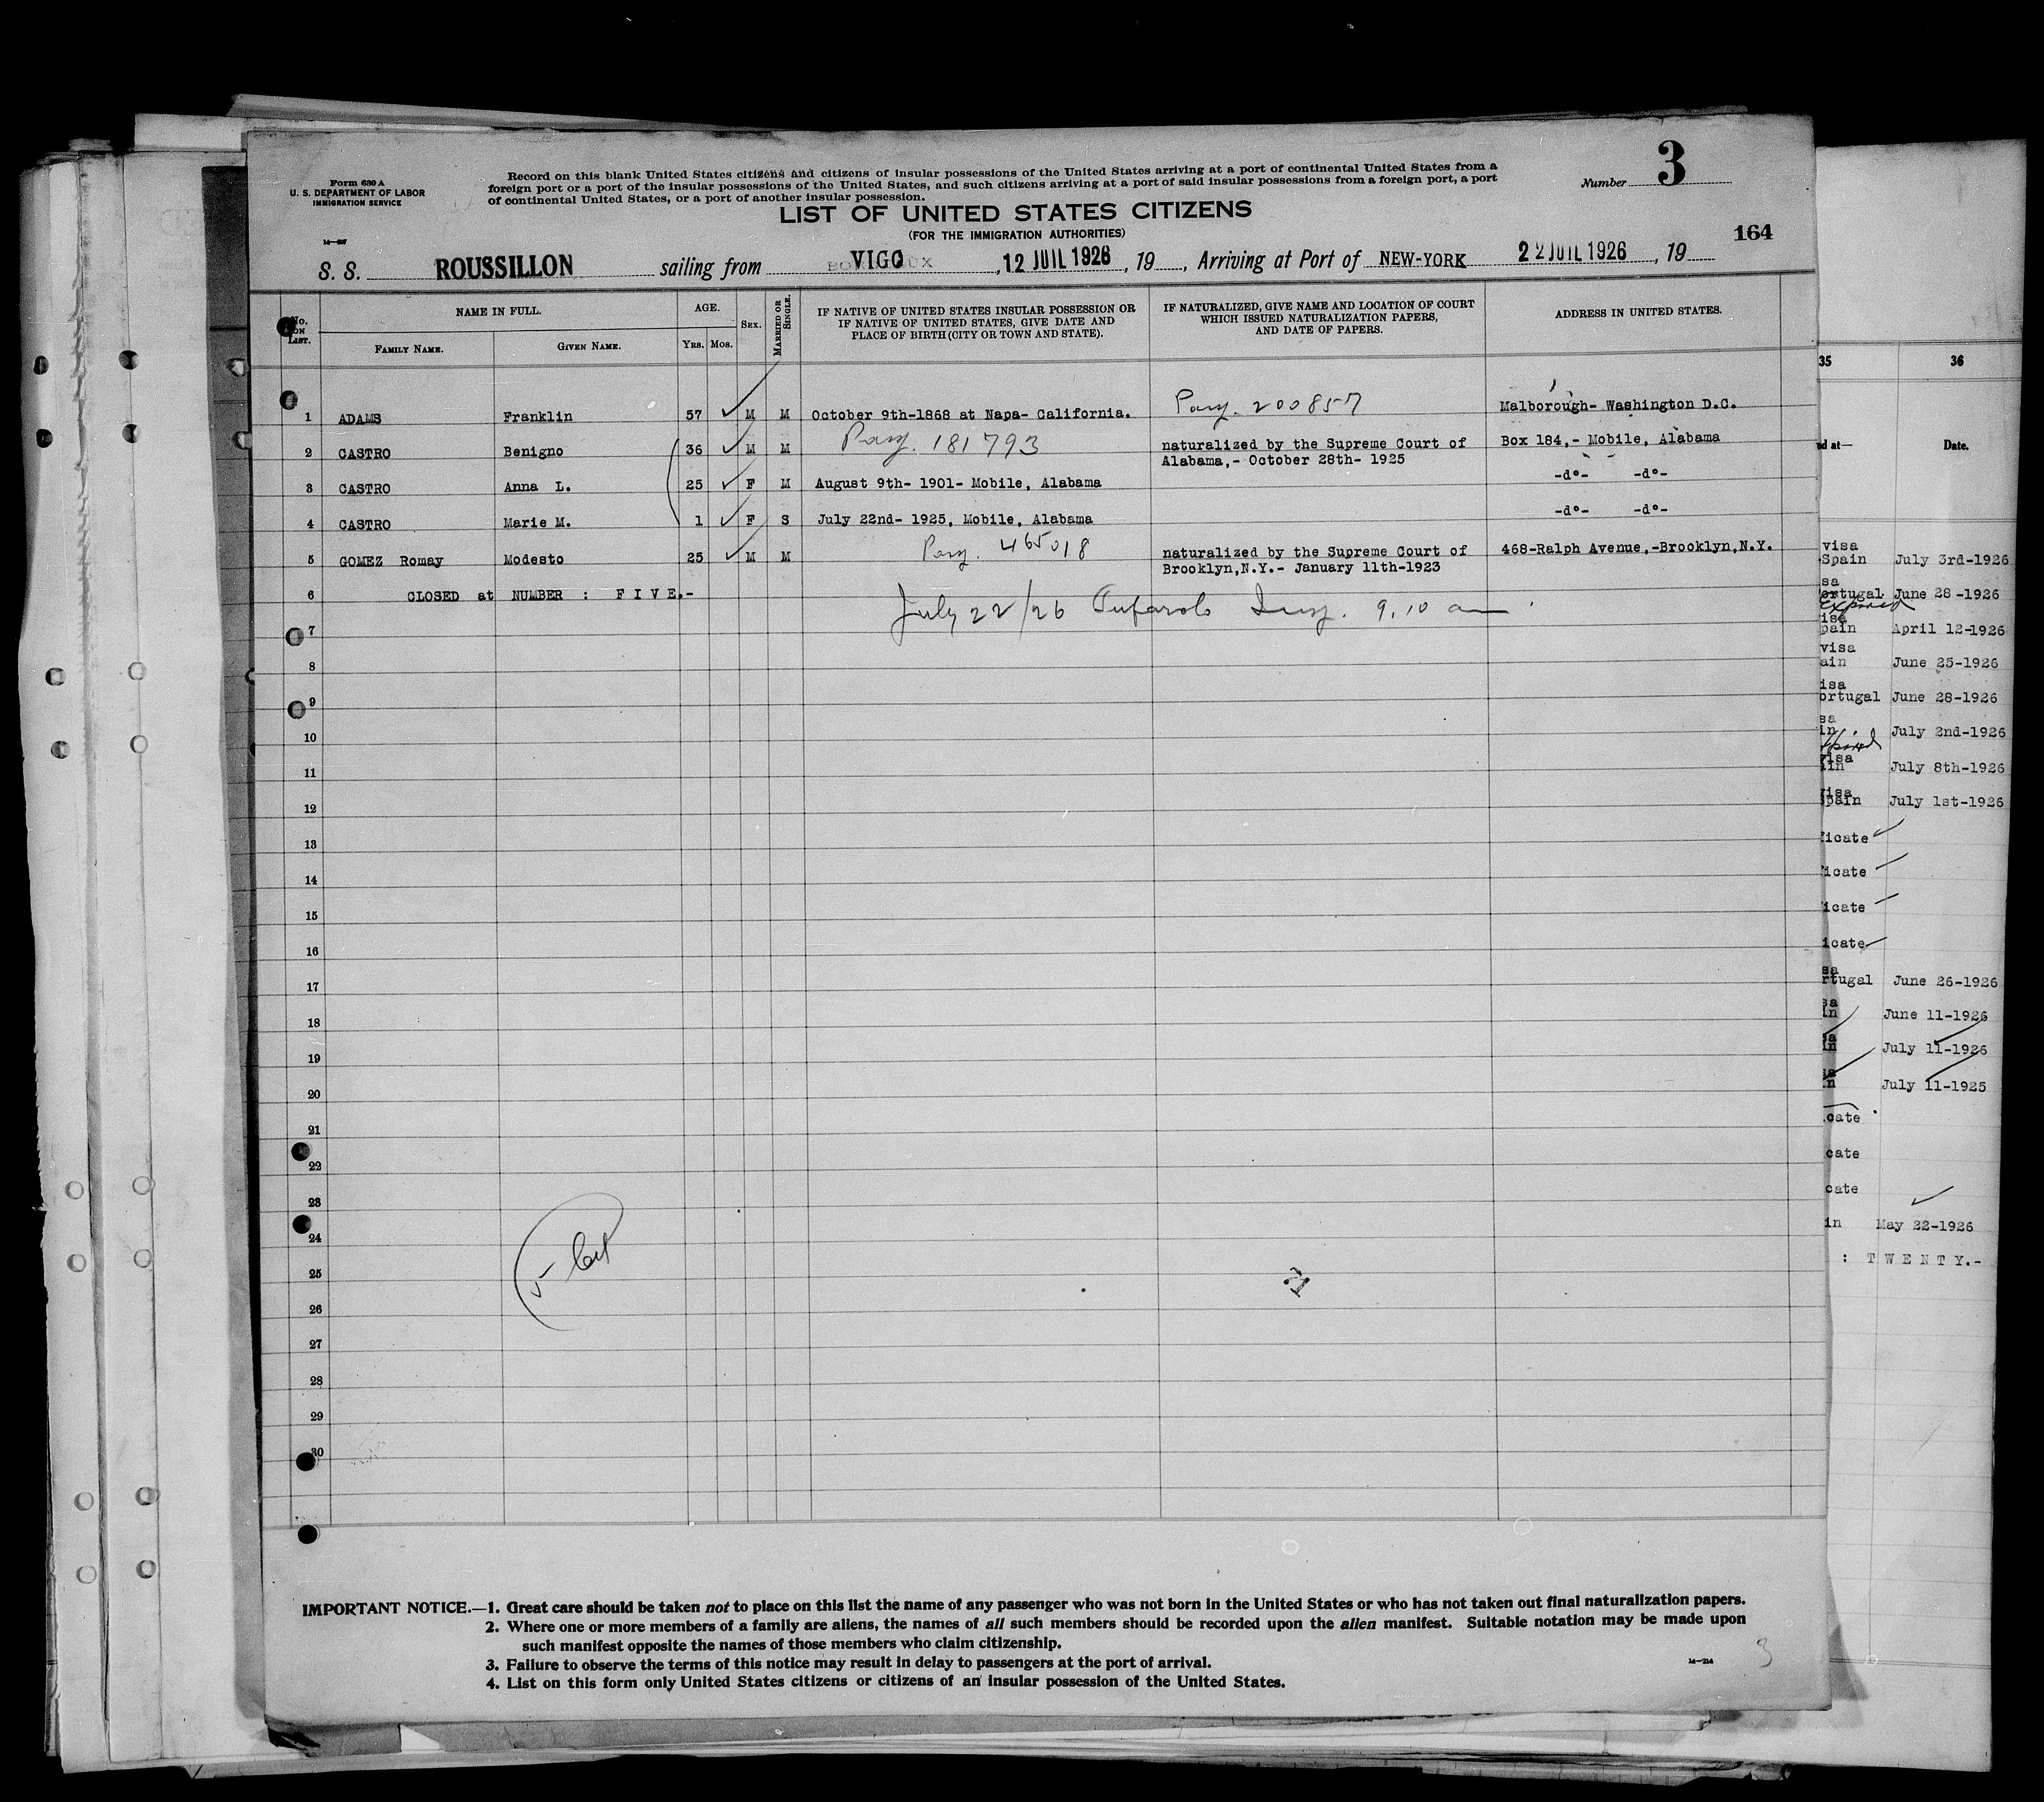 Form 630 A
U. S. DEPARTMENT OF LABOR
IMMIGRATION SERVICE
14—
Record on this blank United States citizens and citizens of insular possessions of the United States arriving at a port of continental United States from a
foreign port or a port of the insular possessions of the United States, and such citizens arriving at a port of said insular possessions from a foreign port, a port
of continental United States, or a port of another insular possession.
Number 3
LIST OF UNITED STATES CITIZENS
(FOR THE IMMIGRATION AUTHORITIES)
164
S. S. ROUSSILLON sailing from VIGO , 12 JUIL 1926 , 19 , Arriving at Port of NEW-YORK 22 JUIL 1926 , 19
No. ON LIST. NAME IN FULL. AGE. SEX. MARRIED OR SINGLE. IF NATIVE OF UNITED STATES INSULAR POSSESSION OR IF NATIVE OF UNITED STATES, GIVE DATE AND PLACE OF BIRTH (CITY OR TOWN AND STATE). IF NATURALIZED, GIVE NAME AND LOCATION OF COURT WHICH ISSUED NATURALIZATION PAPERS, AND DATE OF PAPERS. ADDRESS IN UNITED STATES.
FAMILY NAME. GIVEN NAME. YRS. MOS.
1 ADAMS Franklin 57 M M October 9th-1868 at Napa- California. 200857 Malborough- Washington D.C.
2 CASTRO Benigno 36 M M 181793 naturalized by the Supreme Court of Box 184,- Mobile, Alabama
Alabama,- October 28th- 1925
3 CASTRO Anna L. 25 F M August 9th- 1901- Mobile, Alabama -d°- -d°-
4 CASTRO Marie M. 1 F S July 22nd- 1925, Mobile, Alabama -d°- -d°-
5 GOMEZ Romay Modesto 25 M M 465018 naturalized by the Supreme Court of 468-Ralph Avenue,-Brooklyn,N.Y.
Brooklyn,N.Y.- January 11th-1923
6 CLOSED at NUMBER : F I V E.-
July 22/26 Insp. 9.10 am
7
8
9
10
11
12
13
14
15
16
17
18
19
20
21
22
23
24
25
26
27
28
29
30
5
2
IMPORTANT NOTICE.—1. Great care should be taken not to place on this list the name of any passenger who was not born in the United States or who has not taken out final naturalization papers.
2. Where one or more members of a family are aliens, the names of all such members should be recorded upon the alien manifest. Suitable notation may be made upon
such manifest opposite the names of those members who claim citizenship.
3. Failure to observe the terms of this notice may result in delay to passengers at the port of arrival.
4. List on this form only United States citizens or citizens of an insular possession of the United States.
14—214
3
35 36
Date.
visa
Spain July 3rd-1926
June 28-1926
April 12-1926
visa
June 25-1926
June 28-1926
July 2nd-1926
July 8th-1926
July 1st-1926
June 26-1926
June 11-1926
July 11-1926
July 11-1925
May 22-1926
: T W E N T Y.-